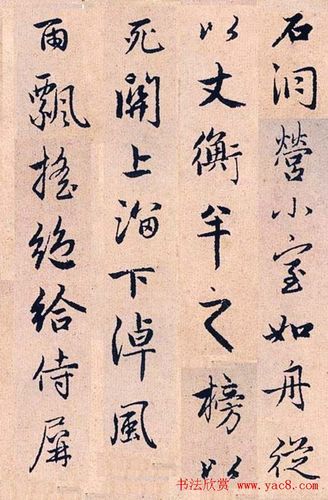 石洞營小室如舟從
以丈衡半之榜以
死關上溜下淖風
雨飄搖絕給侍屏
书法欣赏 www.yac8.com